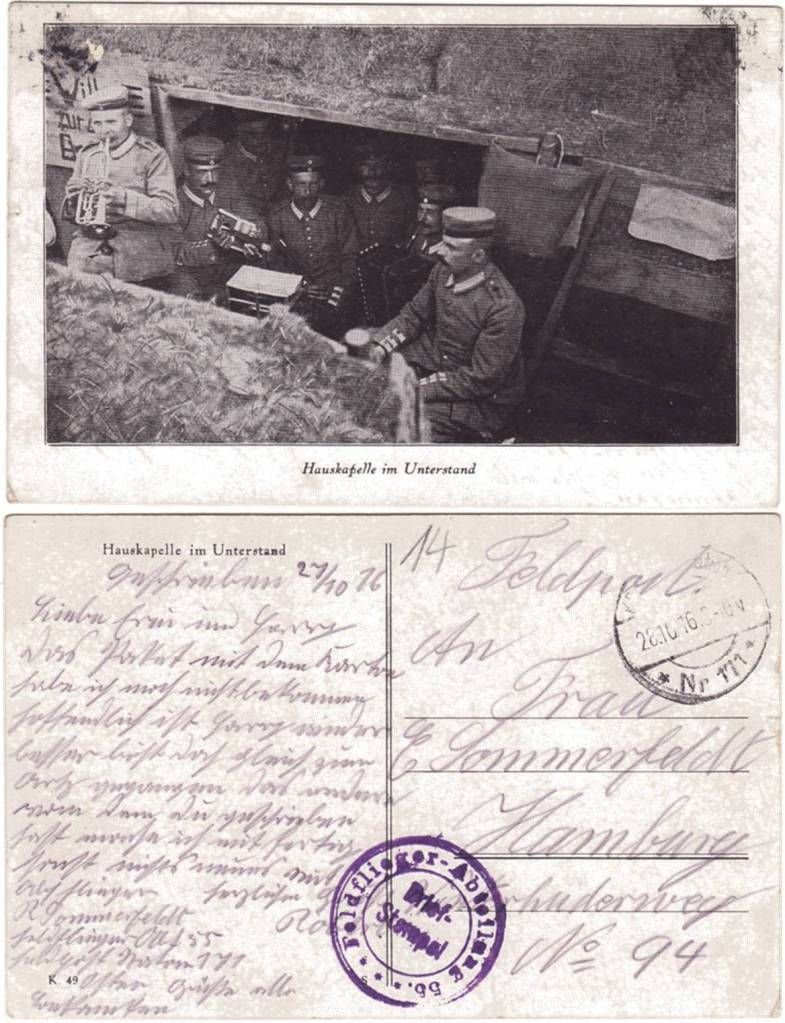 Will
zur
Hauskapelle im Unterstand
Hauskapelle im Unterstand
Geschrieben 27/10 16
Liebe Frau und Harry
Das Paket mit dem Karton
habe ich noch nicht bekommen
hoffendlich ist Harry wieder
besser bist doch gleich zum
Artz gegangen das andere
vom dem, Du geschrieben
hast mache ich mit fertig
sonst nichts neues
R Sommerfeldt
Feldflieger Abt 55
Feldpost Station 171
Osten Grüße alle
Bekannten
K. 49
14 Feldpost.
An
Frau
E Sommerfeldt
Hamburg
No 94
28.10.16.
* Nr 171 *
Feldflieger-Abteilung 55.
Brief-
Stempel